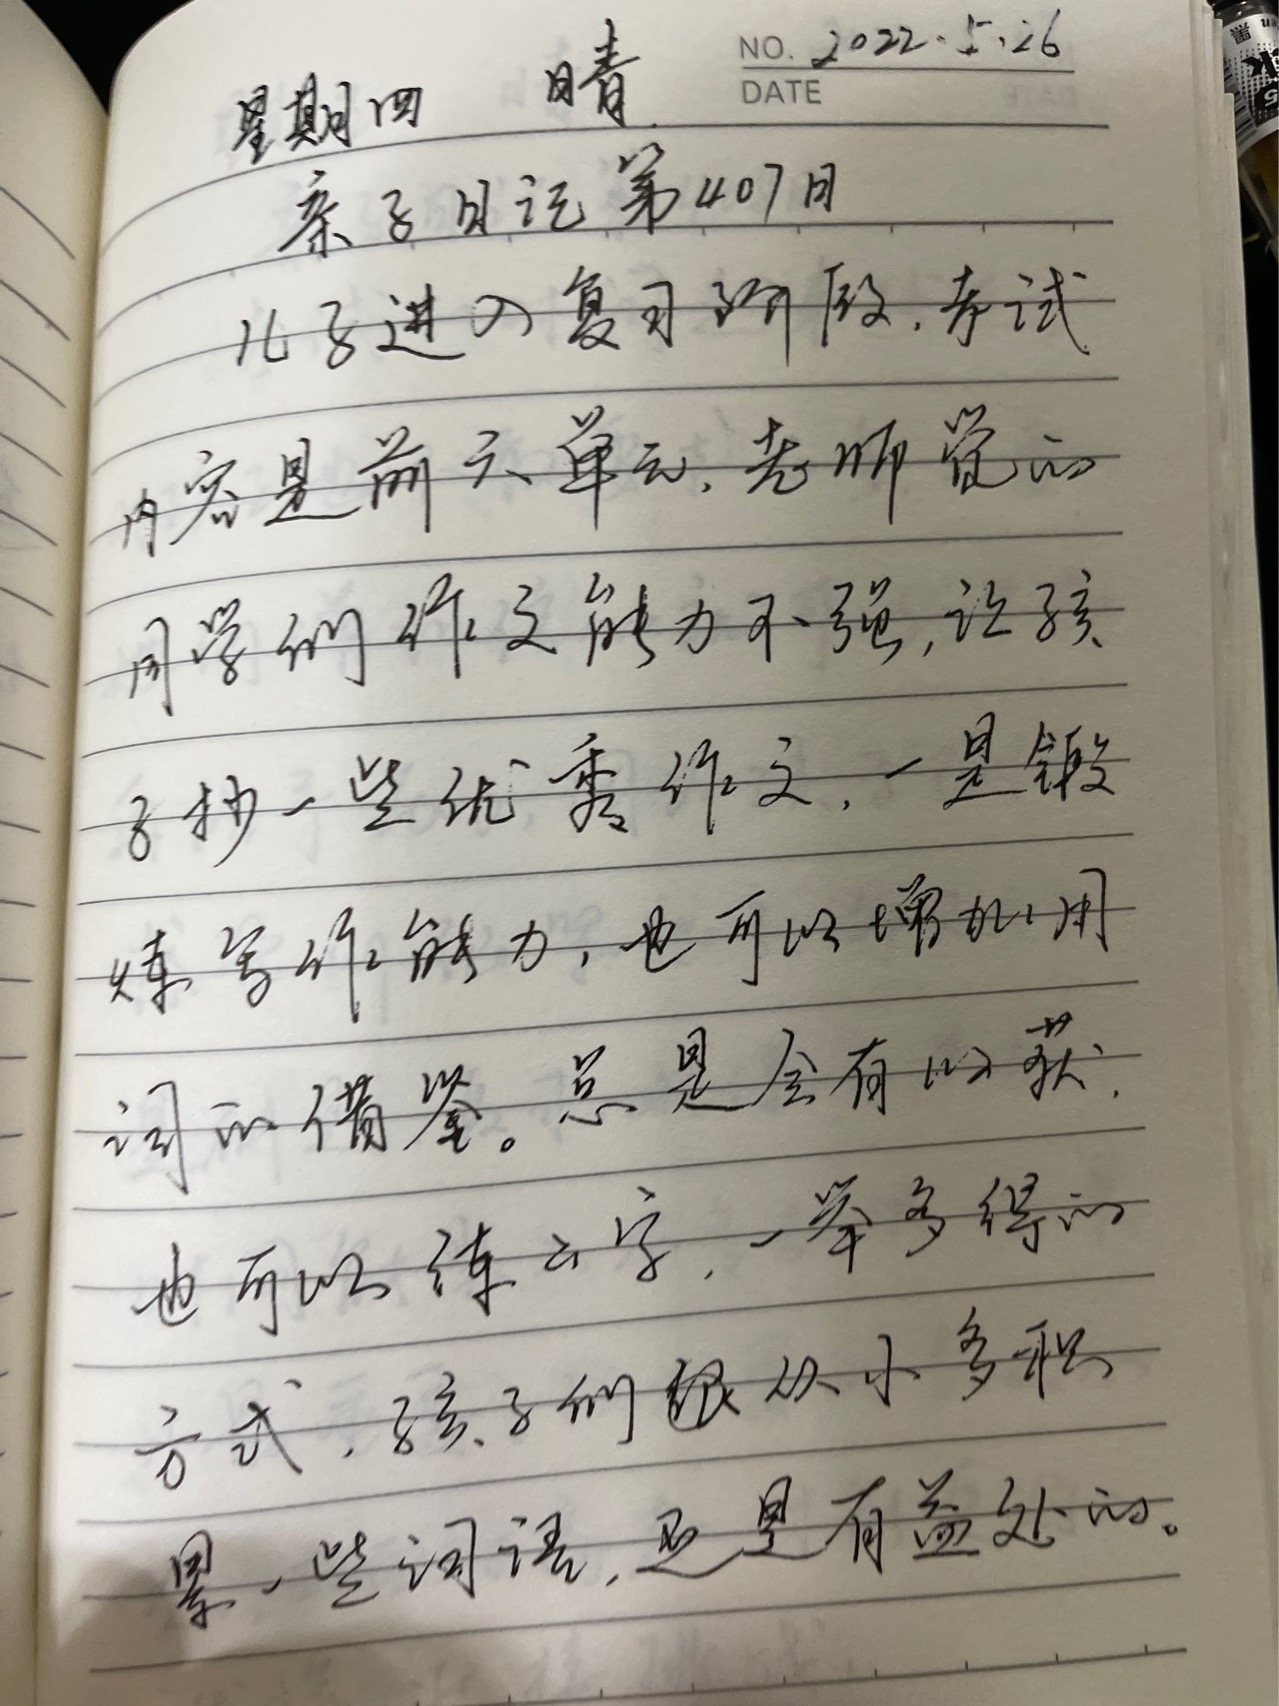 NO. 2022.5.26
DATE
星期四 晴
亲子日记第407日
儿子进入复习阶段,考试
内容是前六单元,老师觉的
同学们作文能力不强,让孩
子抄一些优秀作文,一是锻
炼写作能力,也可以增加用
词的借鉴。总是会有收获,
也可以练练字,一举多得的
方式,孩子们从小多积
累一些词语,还是有益处的。